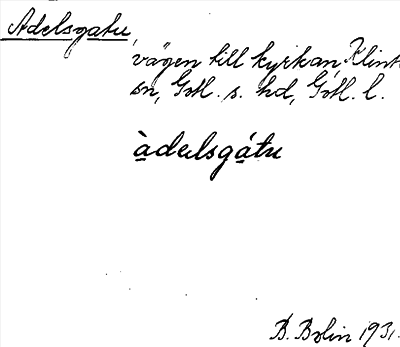 Adelsgatu,
vägen till kyrkan, Klinte
sn, Gotl. s. hd, Gotl. l.
àdelsgátu
B. Bolin 1931.